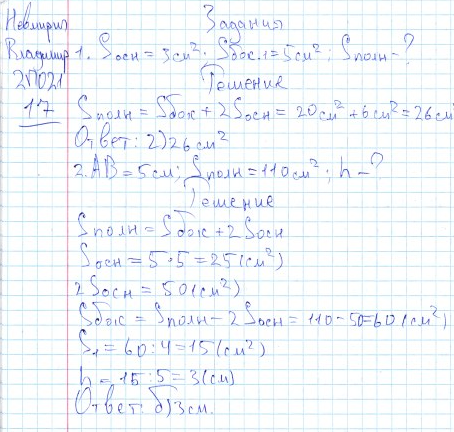 Задания
Владимир 1. Sосн = 3см²; Sбок.1 = 5см²; Sполн - ?
Решение
17
Sполн = Sбок + 2Sосн = 20см² + 6см² = 26см²
Ответ: 2) 26см²
2. AB = 5см; Sполн = 110см²; h - ?
Решение
Sполн = Sбок + 2Sосн
Sосн = 5·5 = 25(см²)
2Sосн = 50(см²)
Sбок = Sполн - 2Sосн = 110 - 50 = 60(см²)
S₁ = 60:4 = 15(см²)
h = 15:5 = 3(см)
Ответ: б) 3см.